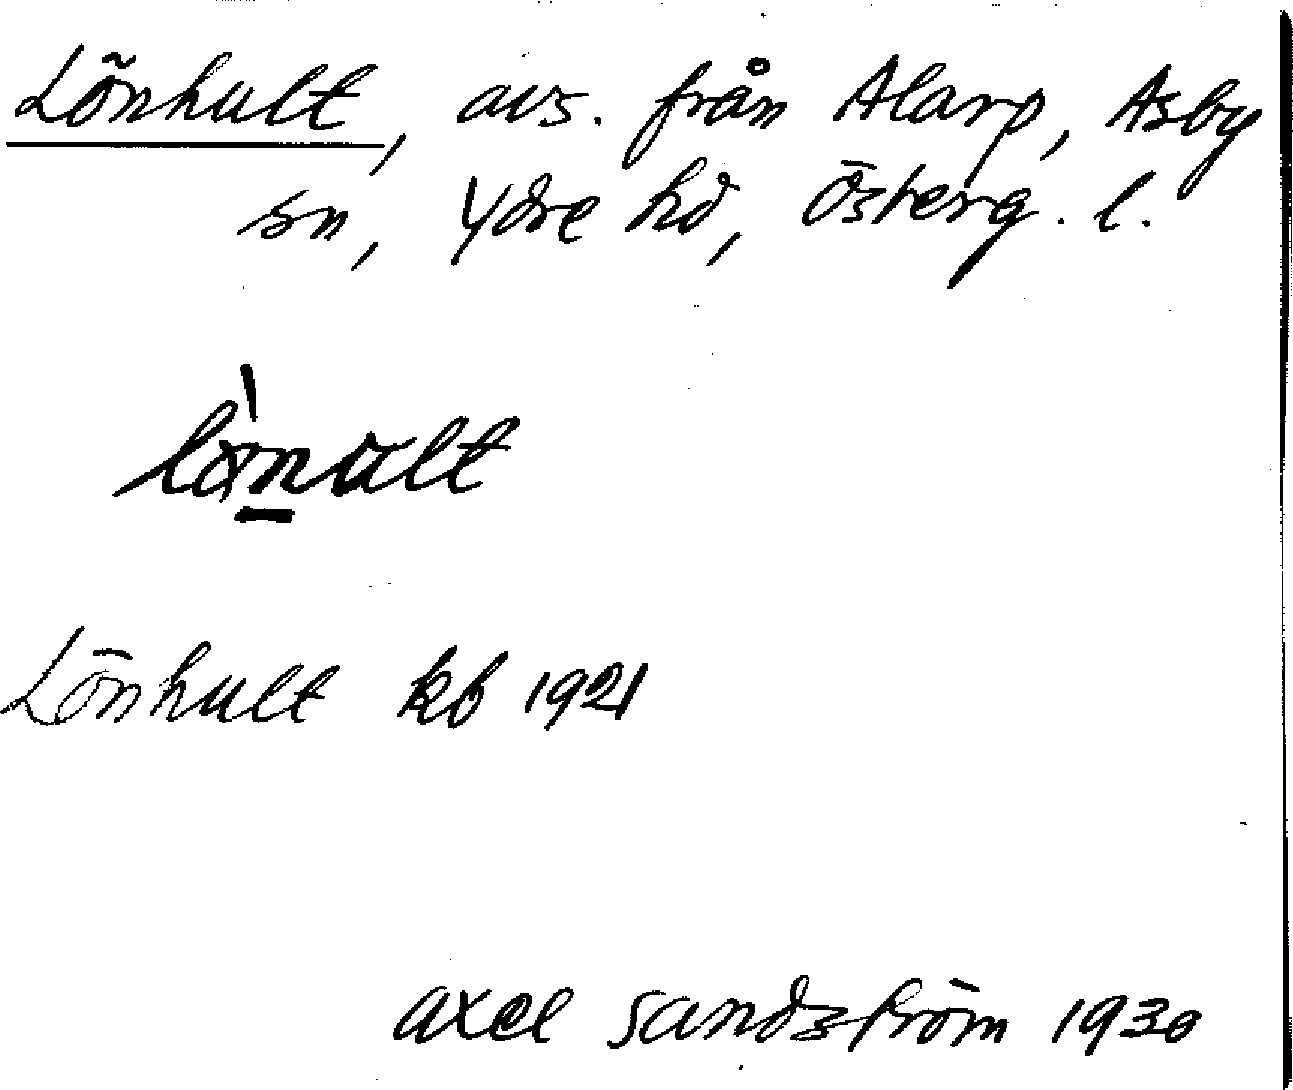 Lönhult, avs. från Alarp, Asby
sn, Ydre hd, Österg. l.
Lönhult kb 1921
Axel Sandström 1930